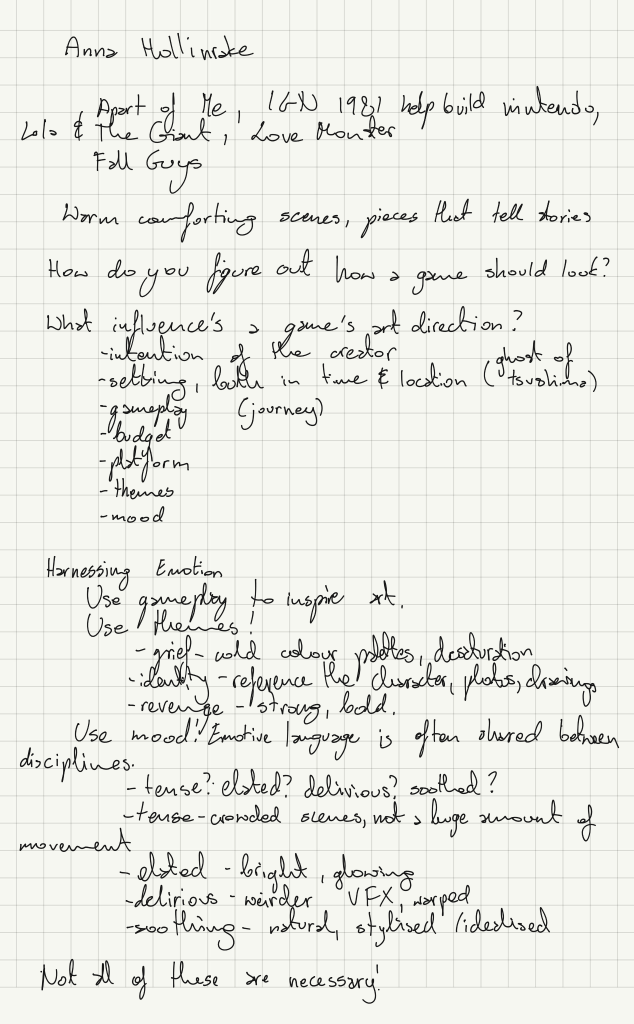 Anna Hollinrake
Apart of Me, IGN 1981 help build nintendo,
Lola & The Giant, Love Monster
Fall Guys
Warm comforting scenes, pieces that tell stories
How do you figure out how a game should look?
What influence's a game's art direction?
-intention of the creator
-setting, both in time & location (ghost of tsushima)
-gameplay (journey)
-budget
-platform
-themes
-mood
Harnessing Emotion
Use gameplay to inspire art.
Use themes!
- grief - cold colour palettes, desaturation
-identity - reference the character, photos, drawings
-revenge - strong, bold.
Use mood! Emotive language is often shared between
disciplines.
- tense? elated? delivious? soothed?
-tense - crowded scenes, not a huge amount of
movement
- elated - bright, glowing
-delirious - weirder VFX, warped
-soothing - natural, stylised /idealised
Not all of these are necessary!